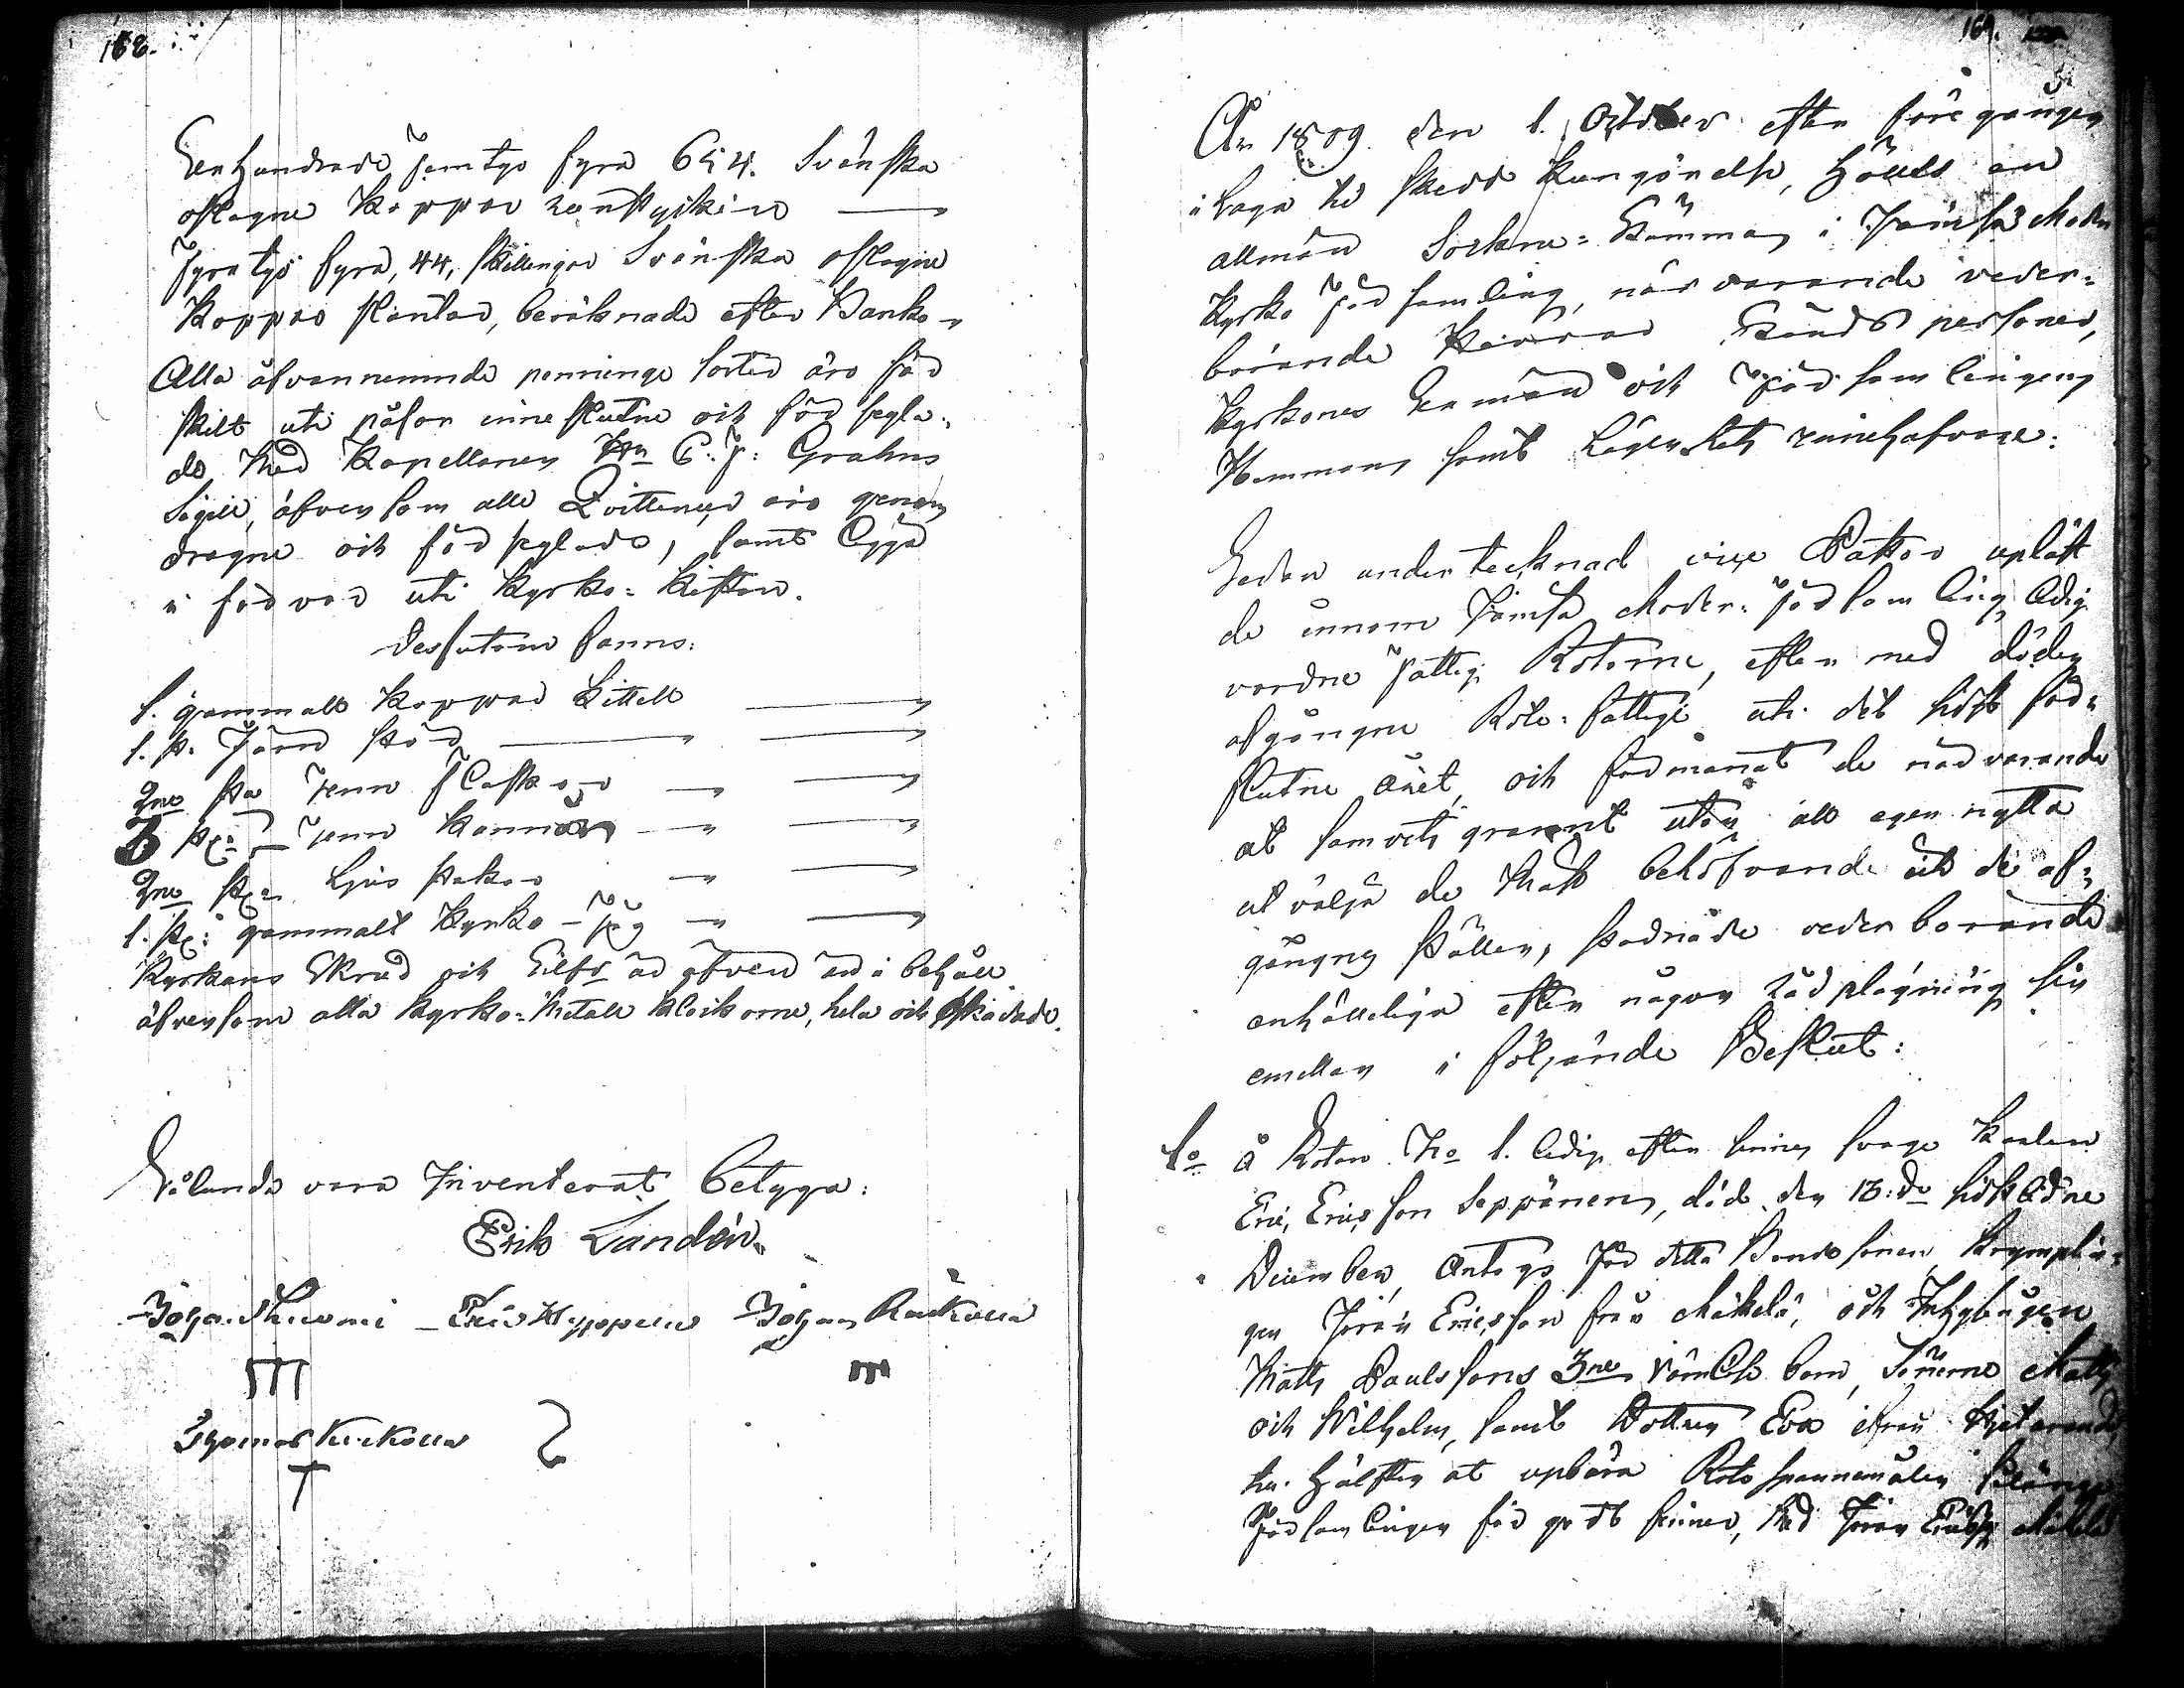 168.
Hundrade femtyo fyra 654. Svänska
oslagne Koppar runstycken
Fyratyo fyra, 44, skillingar Svänska oslagne
Koppar slantar, beräknade efter Banko
Alla åfvannemnde penninge sorter äro sär
skilt uti påsar inneslutne och försegla-
de med Kapellanen Hr C: J: Grahns
Sigill, äfvensom alla Qvittencer äro genom
dragne och förseglade, samt ligga
i förvar uti Kyrko-Kistan.
Dessutom fanns:
1. gammalt Koppar Kittell
1. st. Järn stör
2ne st Tenn Flaskor
3 st: Tenn Kannor
2ne st: Ljus stakar
1. st: gammalt Kyrko-
Kyrkans Skrud och är äfven än i behåll
äfvensom alla Kyrko-Metall Klockorne, hela och oskadade.
Sålunda vara Inventerat, betyga:
Erik Landén.
Johan Eric Heyppenen Johan Raikonen
m m
Thomas
169.
År 1809. den 1. October efter föregången
i Laga tid skedd Kungörelse, hölls en
allmän Sockne-Stämma i Jämsä Moder
Kyrko Församling, närvarande veder-
börande Herrar Stånds personer,
Kyrkones Sexmän och Församlingens
Hemmans samt Lägenhets innehafvare:
Sedan undertecknad vice Pastor uplåst
de innom Jämsä Moder-Församling ledig
vordne Fattig Rotorne, efter med döden
afgångne Rote-fattige uti det sidst för-
flutne året, och förmanat de närvarande
at samvets grannt utan all egen nytta
utvälja de mäst behöfvande uti de af-
gångnes ställen, stadnade vederbörande
enhälleligen efter någon rådplägning sin
emellan i följande Beslut:
1o å Roten No 1. ledig efter sinnes svage Karlen
Eric Ericsson Seppänen, död den 18:de sidstledne
December, antogs för detta Bonde sonen, Krymplin-
gen Jöran Ericsson från Mäkelä, och Inhysingen
Matts Paulssons 3ne barn, Sönerne Matts
och Wilhelm, samt Dottren Eva ifrån
hälften at upbära Rote spannemålen
Församlingen för godt finner, med Jöran Ericss: Mäkelä